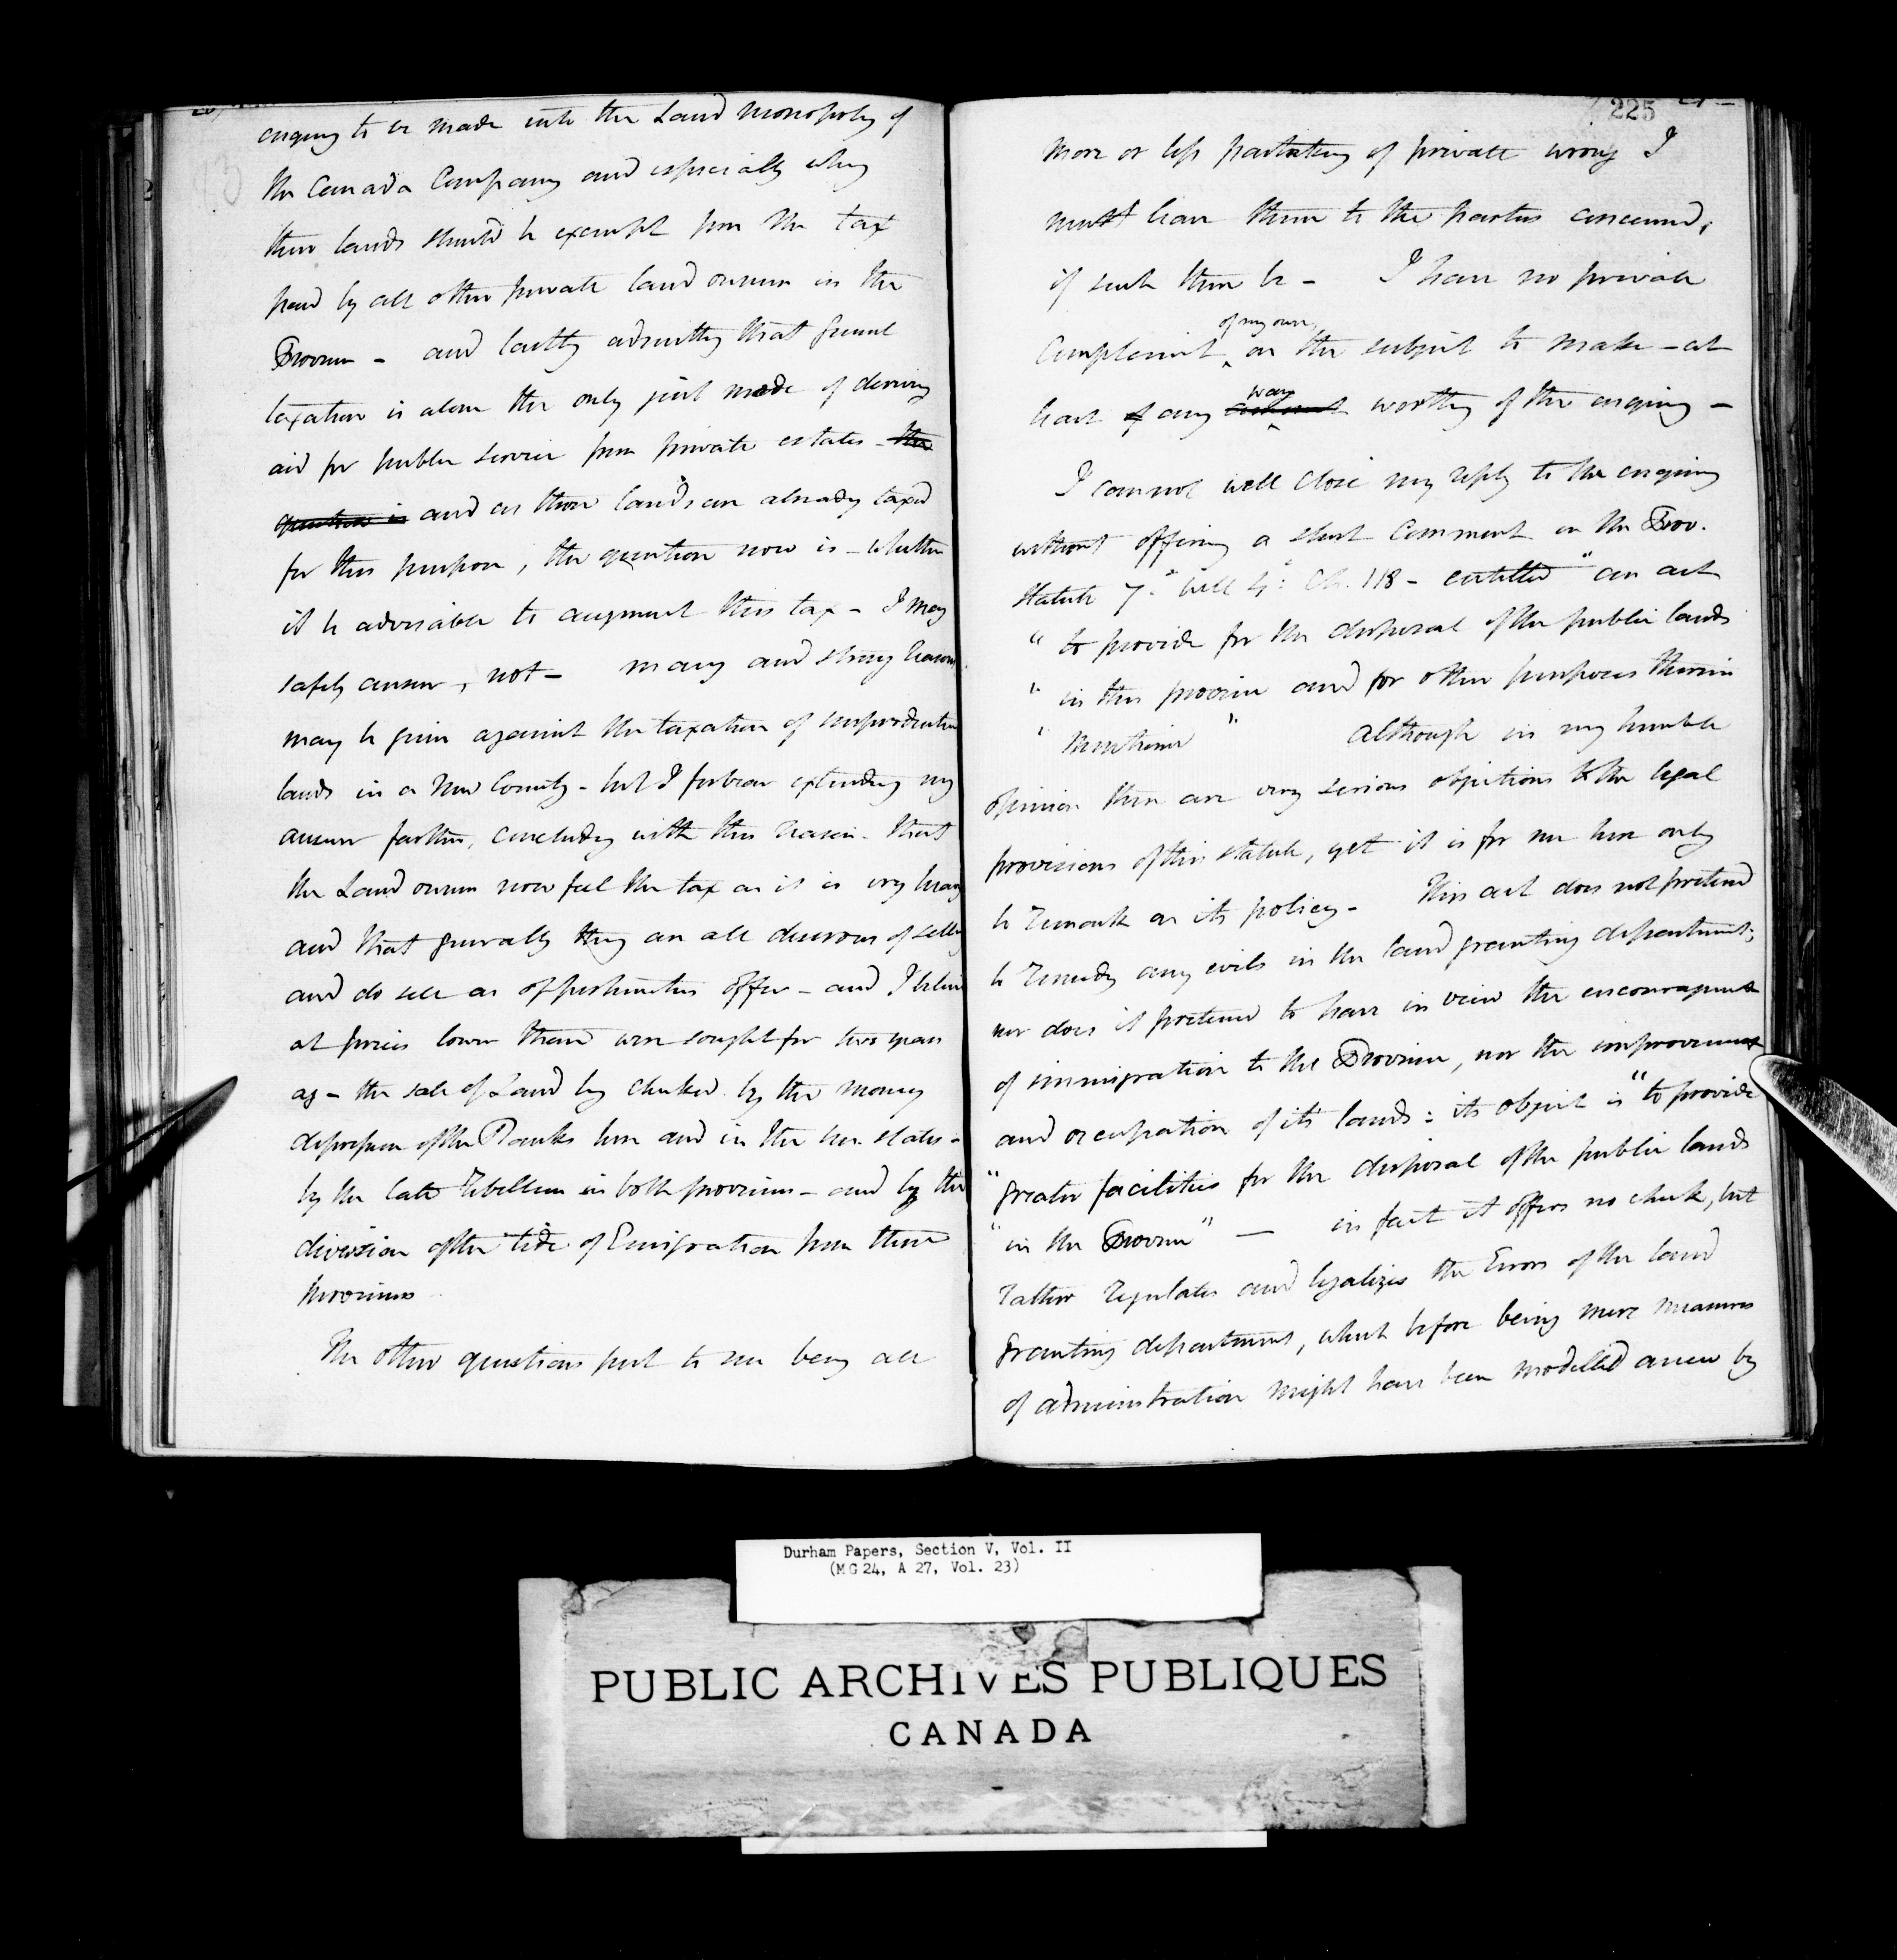 enquiry to be made into the Land monopoly of
the Canada Company and especially why
their lands should be exempt from the tax
paid by all other private land owners in the
Province - and lastly admitting that general
taxation is alone the only just mode of deriving
aid for public service from private estates - the
question is and as these lands are already taxed
for this purpose, the question now is - whether
it be advisable to augment this tax - I may
safely answer, not - many and strong reasons
may be given against the taxation of unproductive
lands in a new Country - but I forbear extending my
answer farther, concluding with this reason - that
the Land owners now feel the tax as it is very heavy
and that generally they are all desirous of selling
and do sell as opportunities offer - and I believe
at prices lower than were sought for two years
ago - the sale of Land being checked by the money
depression of the Banks here and in the States -
by the late rebellion in both provinces - and by the
diversion of the tide of Emigration from these
provinces
The other questions put to me being all
225
more or less partaking of private wrong I
must leave them to the parties concerned,
if such there be - I have no private
of my own,
Complaint on the subject to make - at
way
least any worthy of the enquiry -
I cannot well close my reply to the enquiry
without offering a short Comment on the Prov.
Statute 7. Will 4: Ch. 118 - entitled "an act
" to provide for the disposal of the public lands
" in this province and for other purposes therein
" mentioned" although in my humble
opinion there are very serious objections to the legal
provisions of this statute, yet it is for me here only
to remark on its policy - This act does not pretend
to remedy any evils in the land granting department;
nor does it pretend to have in view the encouragement
of immigration to the Province, nor the improvement
and occupation of its lands: its object is "to provide
"greater facilities for the disposal of the public lands
"in the Province" - in fact it offers no check, but
rather regulates and legalizes the Errors of the land
granting department, which before being mere measures
of administration might have been modelled anew by
Durham Papers, Section V, Vol. II
(MG 24, A 27, Vol. 23)
PUBLIC ARCHIVES PUBLIQUES
CANADA